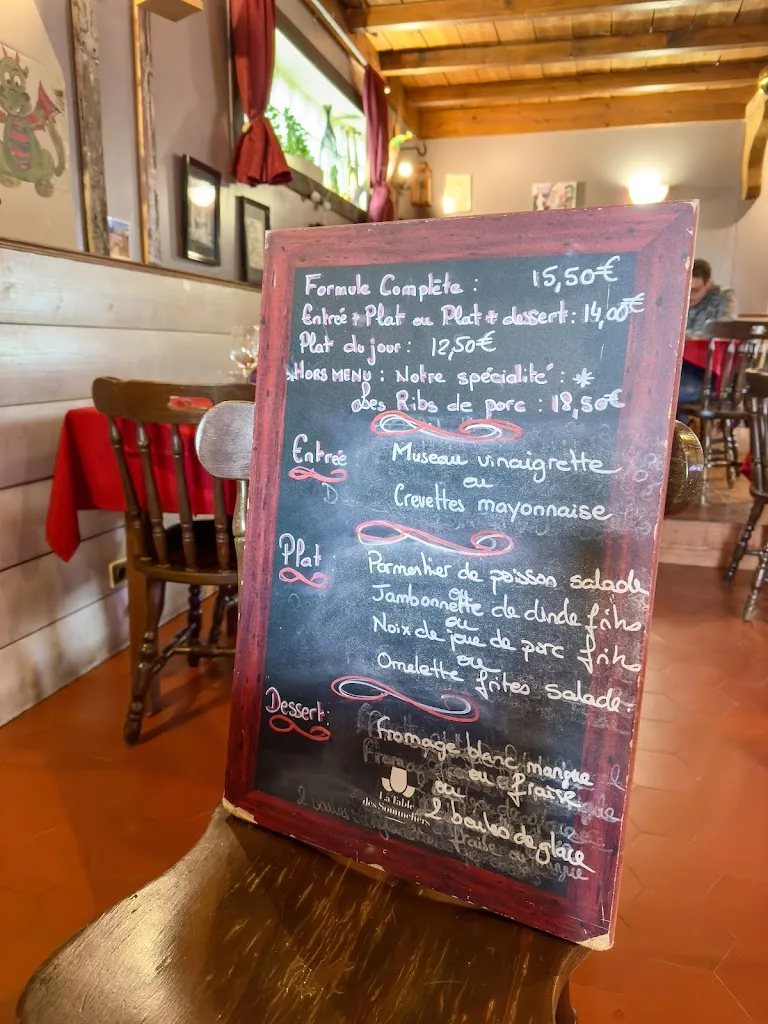 Formule Complète : 15,50€
Entrée + Plat ou Plat + dessert : 14,00€
Plat du jour : 12,50€
*HORS MENU : Notre spécialité : *
Les Ribs de porc : 18,50€
Entrée
Museau vinaigrette
ou
Crevettes mayonnaise
Plat
Parmentier de poisson salade
ou
Jambonnette de dinde frites
ou
Noix de joue de porc frites
ou
Omelette frites salade.
Dessert :
fromage blanc mangue
ou fraise
ou
2 boules de glace
La Table
des Sommeliers